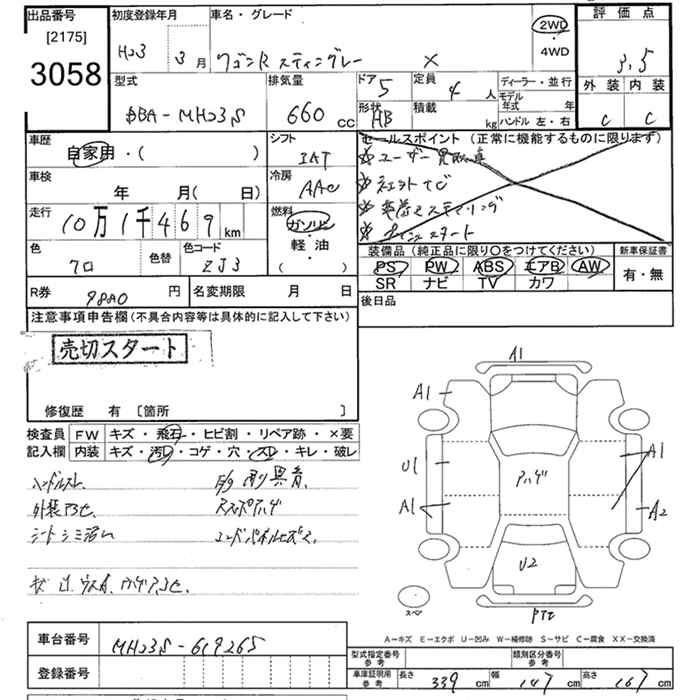 出品番号
[2175]
3058
初度登録年月
H23 3月
車名・グレード
ワゴンR スティングレー X
2WD
・
4WD
評価点
3.5
外装 内装
C C
型式
DBA-MH23S
排気量
660 cc
ドア
5
形状
HB
定員
4人
積載
kg
ディーラー・並行
モデル
年式 年
ハンドル 左・右
車歴
自家用・( )
車検
年 月( 日)
走行
10万1千469km
色
クロ
色替
色コード
ZJ3
シフト
IAT
冷房
AAC
燃料
ガソリン
・
軽油
・
( )
セールスポイント (正常に機能するものに限ります)
☆ユーザー買取車
☆
☆
☆ スタート
装備品 (純正品に限り〇をつけてください)
PS PW ABS エアB AW
SR ナビ TV カワ
新車保証書
有・無
後日品
R券 9880円
名変期限 月 日
注意事項申告欄(不具合内容等は具体的に記入して下さい)
売切スタート
修復歴 有 〔箇所 〕
検査員
記入欄
FW キズ・飛石・ヒビ割・リペア跡・×要
内装 キズ・汚レ・コゲ・穴・スレ・キレ・破レ
ハンドルスレ
外装
シートシミ
A1
A1
U1
A1
アハゲ
A1
A2
U2
スペア
A-キズ E-エクボ U-凹み W-補修跡 S-サビ C-腐食 XX-交換済
車台番号 MH23S-619265
登録番号
型式指定番号
参考
類別区分番号
参考
車庫証明用
参考
長さ 339 cm 幅 147 cm 高さ 167 cm